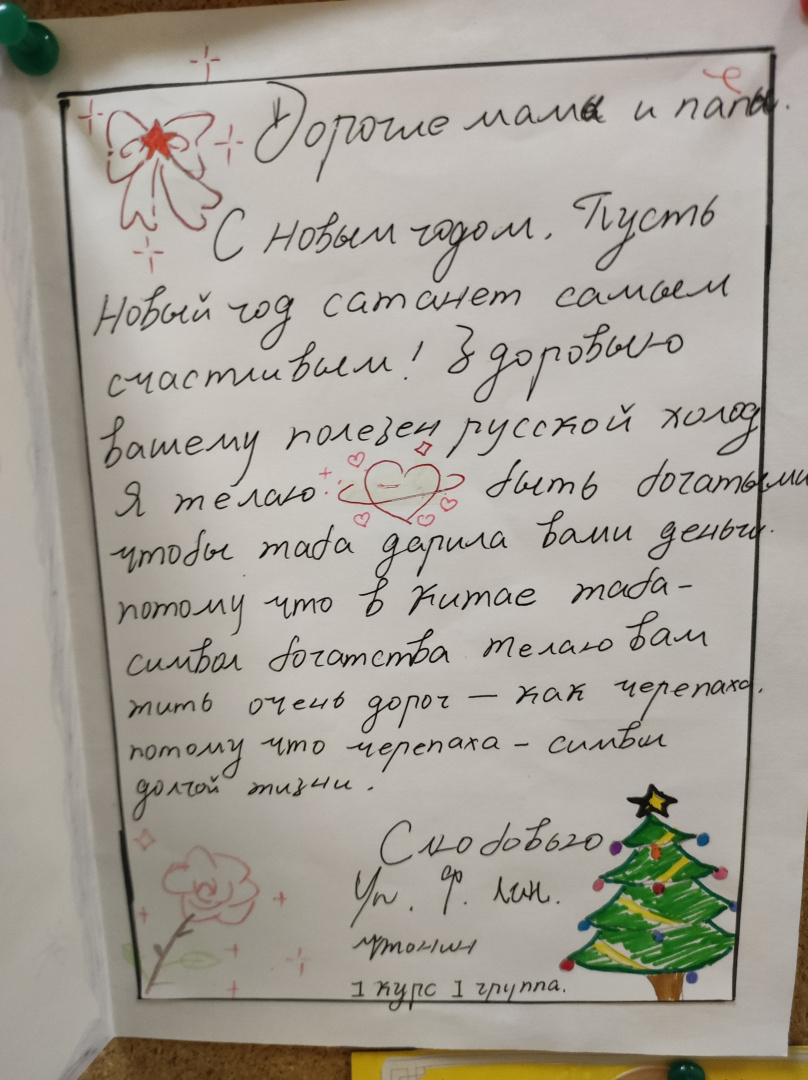 Дорогие мама и папа.
С новым годом. Пусть
Новый год сатанет самым
счастливым! Здоровью
вашему полезен русской холод
Я телаю быть богатыми
чтобы таба дарила вами деньги.
потому что в Китае таба-
символ богатства телаю вам
жить очень дорог — как черепаха.
потому что черепаха - символ
долгой жизни.
С любовью
Ф. Лин.
1 курс 1 группа.